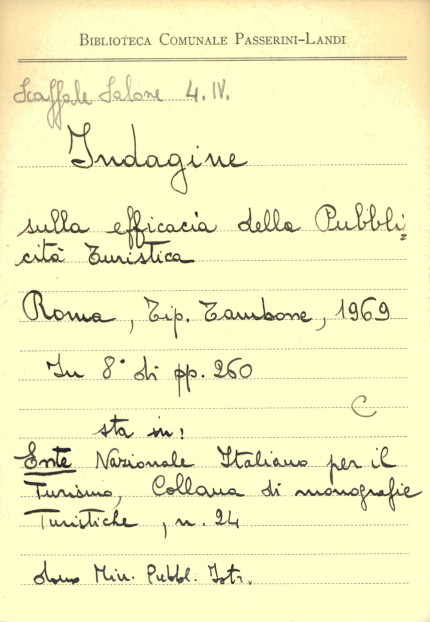 BIBLIOTECA COMUNALE PASSERINI-LANDI
Scaffale Salone 4.IV.
Indagine
sulla efficacia della Pubbli=
cità Turistica
Roma, Tip. Tambone, 1969
In 8° di pp. 260
C
sta in:
Ente Nazionale Italiano per il
Turismo, Collana di monografie
Turistiche, n. 24
dono Min. Pubbl. Istr.